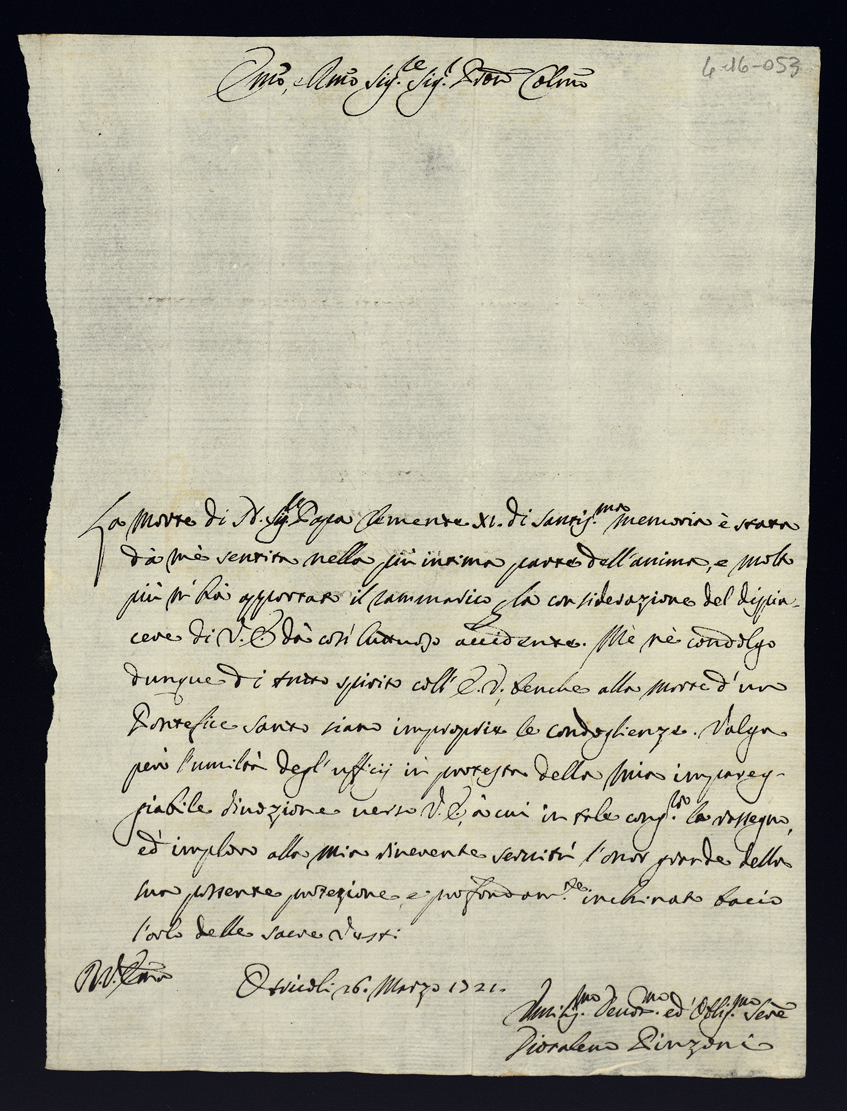 4-16-053
Emō, e Rmō Sig.re Sig.r Prōn Colmō
La morte di N. Sig.re Papa Clemente XI. di santis.ma memoria è stata
dà mè sentita nella più intima parte dell'anima, e molto
più m'hà apportato il rammarico la considerazione del dispia-
cere di V. E. dà così luttuoso accidente. Mè nè condolgo
dunque di tutto spirito coll' E. V., benche alla morte d'un
Pontefice santo siano improprie le condoglienze. Vaglia
però l'umiltà degl'ufficij in protesta della mia impareg-
giabile divozione verso V. E., à cui in tale cong.ra la rassegno,
ed imploro alla mia riverente servitù l'onor grande della
sua possente protezione, e profondam.te inchinato bacio
l'orlo delle sacre vesti.
D. V. Emā
Otricoli 26. Marzo 1721.
Umiliss.mo Devot.mo ed Oblig.mo Serē
Pinzoni